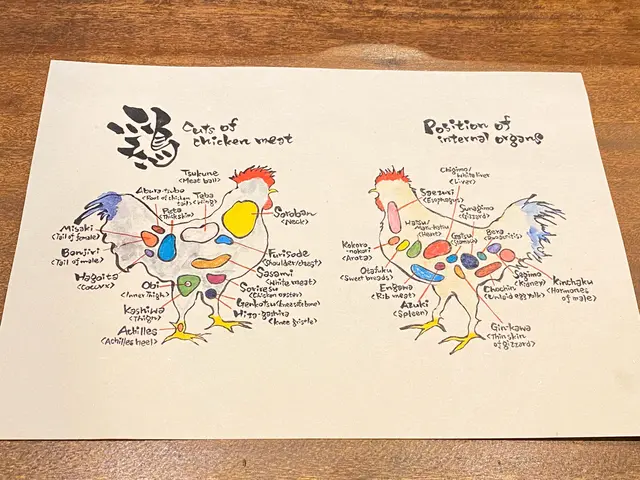 鶏
Cuts of
chicken meat
Tsukune
<Meat ball>
Abura-tsubo
<Part of chicken
tail>
Teba
<Wing>
Peta
<Thick skin>
Misaki
<Tail of female>
Bonjiri
<Tail of male>
Hagoita
<Coccyx>
Obi
<Inner thigh>
Kashiwa
<Thigh>
Achilles
<Achilles heel>
Soroban
<Neck>
Furisode
Sasami
<White meat>
Soriresu
<Chicken oyster>
Genkotsu<Knees&bone>
Hiza-gashira
<Knee gristle>
Position of
internal organs
Chigimo/
White liver
<Liver>
Saezuri
<Esophagus>
Sunagimo
<Gizzard>
Hatsu/
<Heart>
Gatsu
<Stomach>
Bera
Kokoro
-nokori
<Aorta>
Otafuku
<Sweet breads>
Engawa
<Rib meat>
Azuki
<Spleen>
Segimo
<Kidney>
Chochin
Kinchaku
<Hormones
of male>
Ginkawa
<Thin skin
of gizzard>